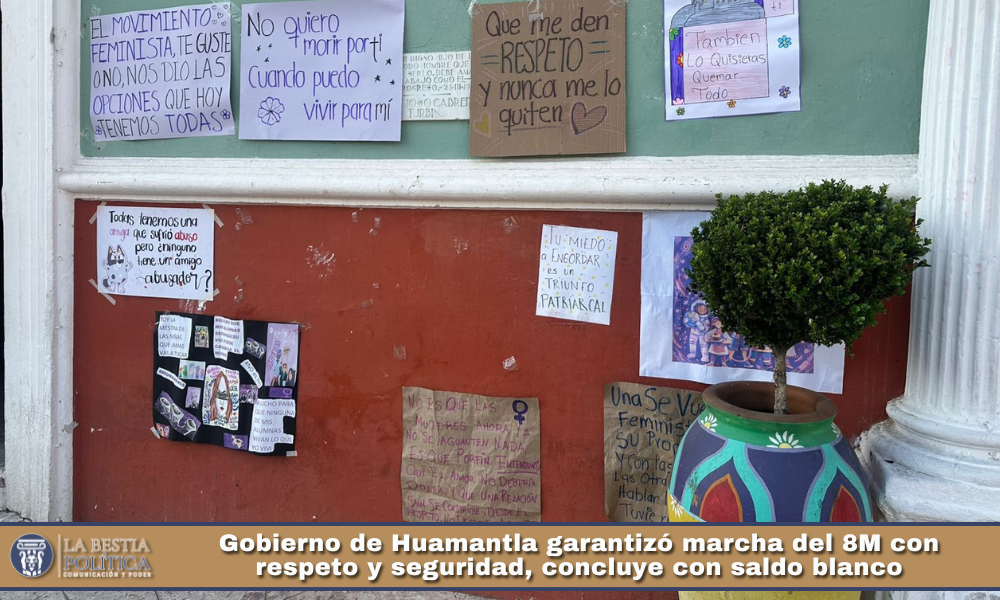 EL MOVIMIENTO
FEMINISTA, TE GUSTE
O NO, NOS DIO LAS
OPCIONES QUE HOY
TENEMOS TODAS
No quiero
morir por ti
Cuando puedo
vivir para mí
Que me den
RESPETO
y nunca me lo
quiten
También
Lo Quisieras
Quemar
Todo
Todas tenemos una
amiga que sufrió abuso
pero ¿ninguno
tiene un amigo
abusador?
TU MIEDO
A ENGORDAR
es un
TRIUNFO
PATRIARCAL
SOY LA
MAESTRA DE
LAS NIÑAS
QUE JAMÁS
VAS A TOCAR
LUCHO PARA
QUE NINGUNA
DE MIS
ALUMNAS
VIVAN LO QUE
YO VIVÍ
NO ES QUE LAS
MUJERES AHORA
NO SE AGUANTEN NADA
ES QUE POR FIN ENTENDIMOS
QUE EL AMOR NO DEBERÍA
DOLER Y QUE UNA RELACIÓN
SANA SE CONSTRUYE DESDE EL
RESPETO
Una Se Vu
Feminis
SU Prop
Y con las
Las Otra
Hablan
Tuvie
LA BESTIA
POLÍTICA
COMUNICACIÓN Y PODER
Gobierno de Huamantla garantizó marcha del 8M con
respeto y seguridad, concluye con saldo blanco